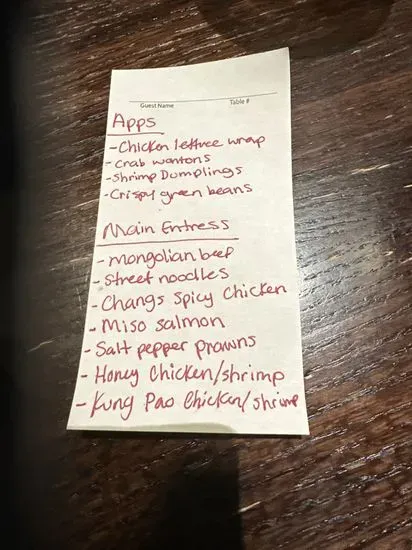 Guest Name Table #
Apps
- Chicken lettuce wrap
- crab wontons
- Shrimp Dumplings
- Crispy green beans
Main Entress
- mongolian beef
- street noodles
- Changs spicy Chicken
- Miso salmon
- Salt pepper prawns
- Honey Chicken/shrimp
- Kung Pao Chicken/shrimp